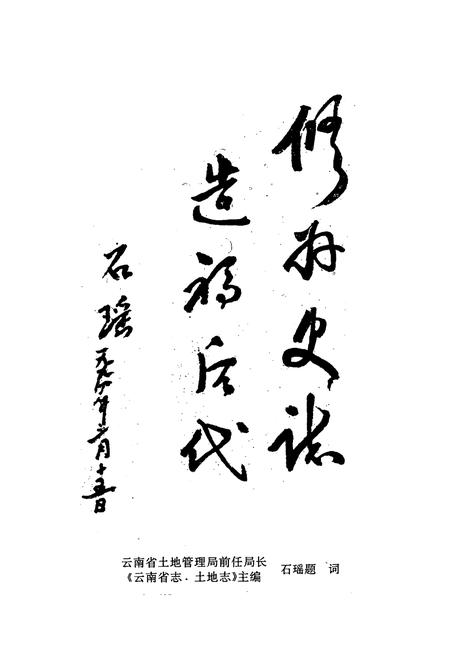 修好史誌
造福后代
石瑶
一九九六年二月十五日
云南省土地管理局前任局长
《云南省志·土地志》主编
石瑶题 词